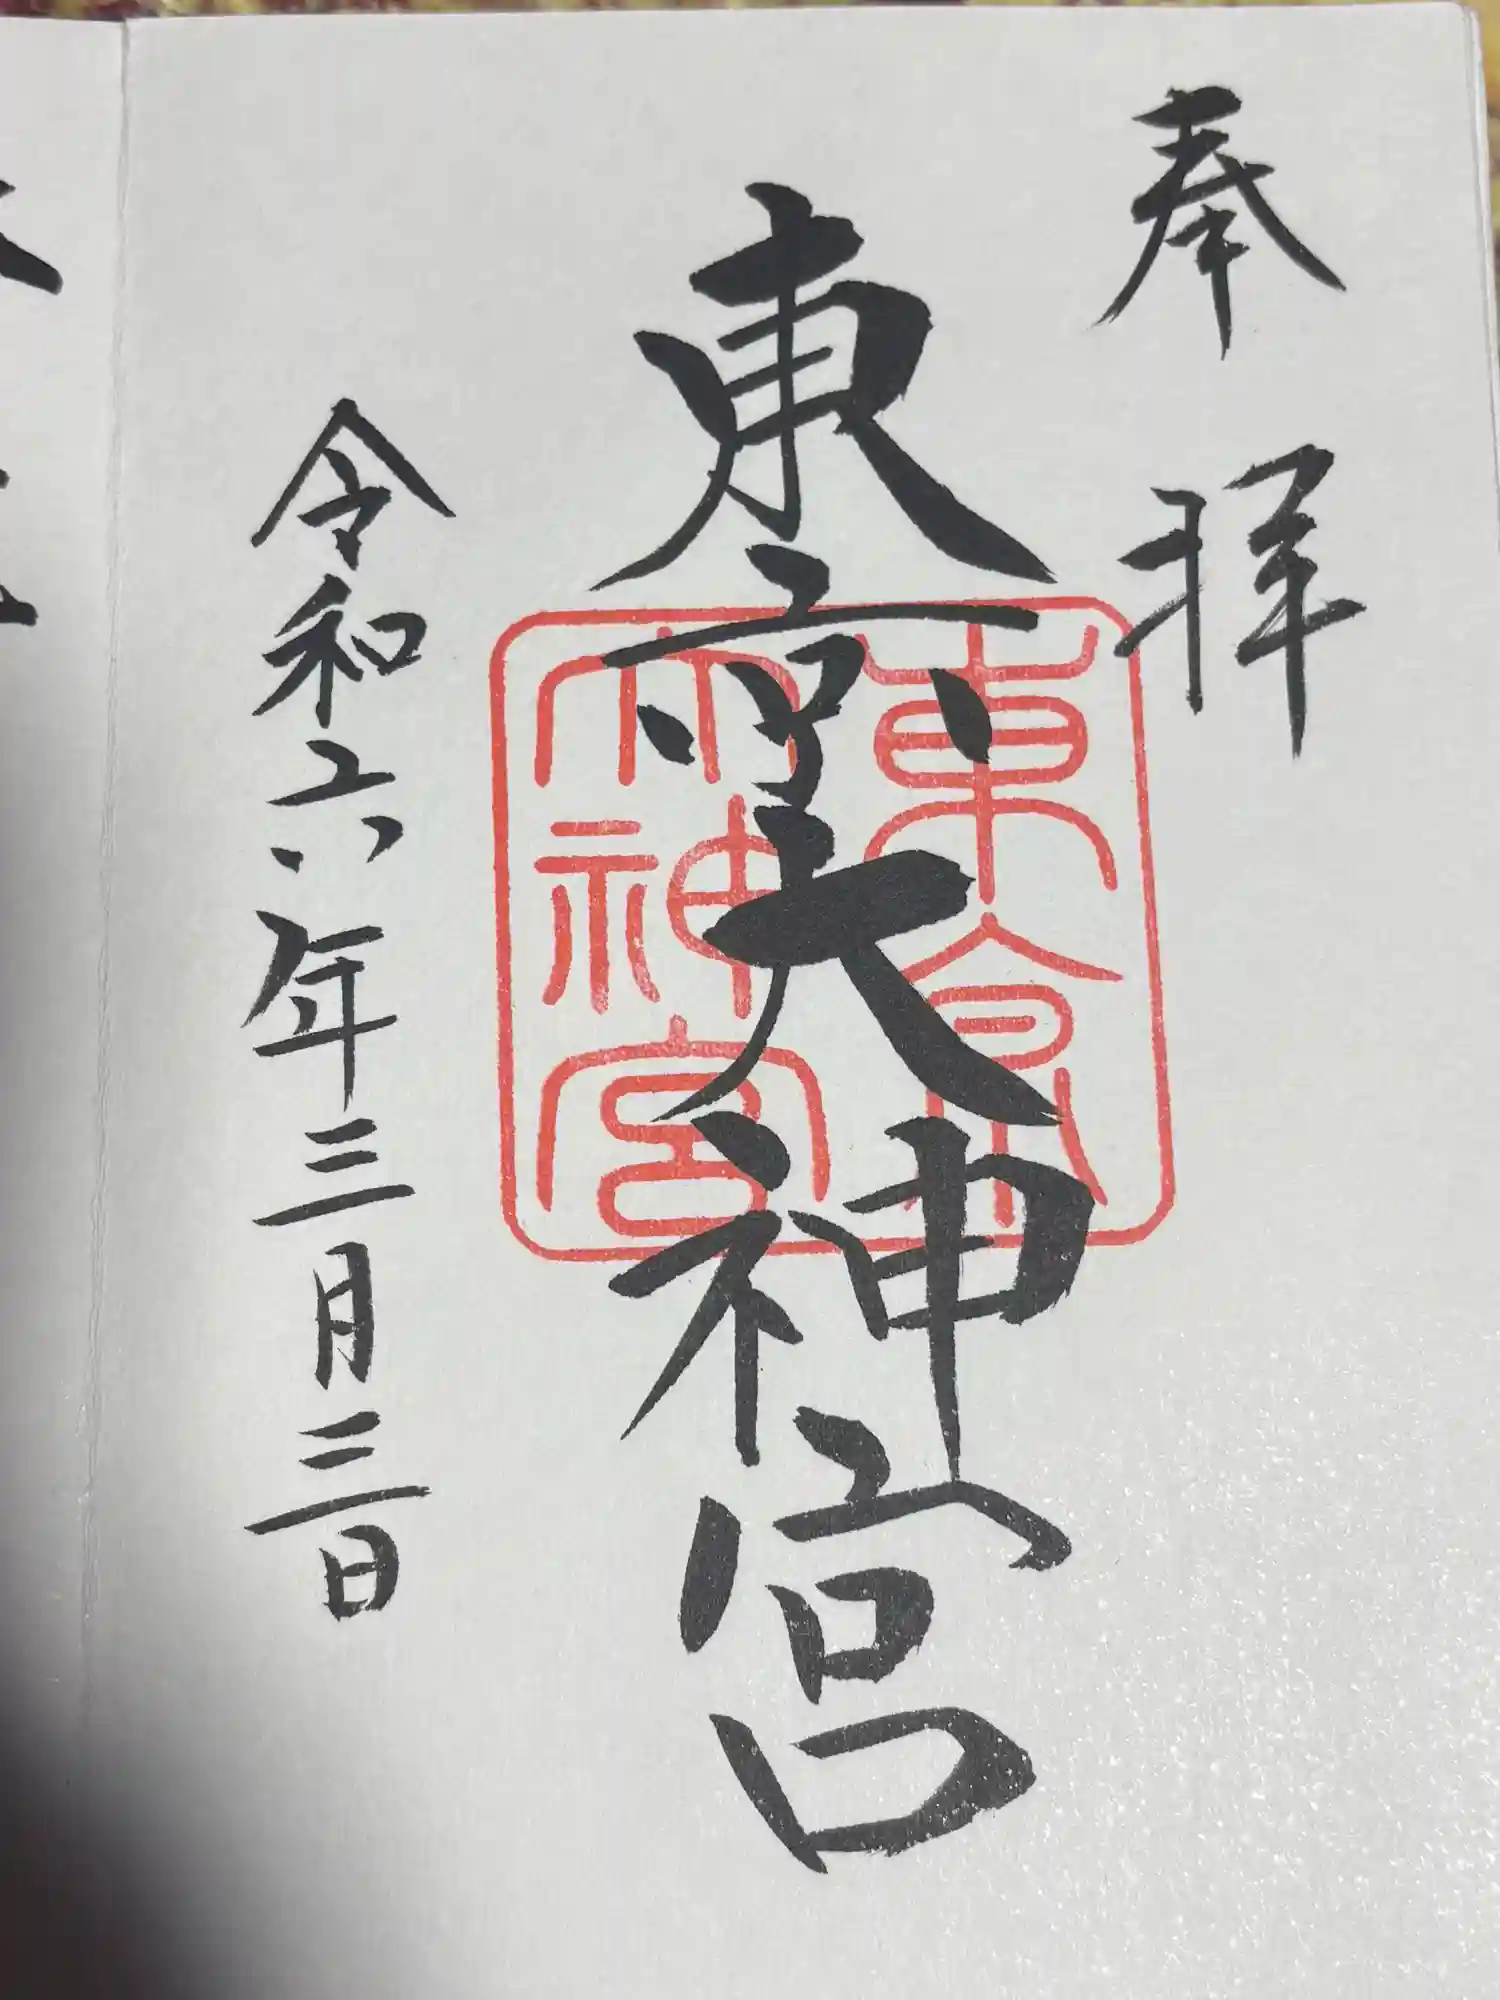 奉拝
東京大神宮
東京
大神宮
令和六年三月三日